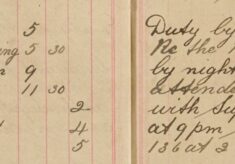 5
5 30
9
11 30
2
4
5
Duty by
Re the
by night
attende
with Su
at 9 pm
136 at 2